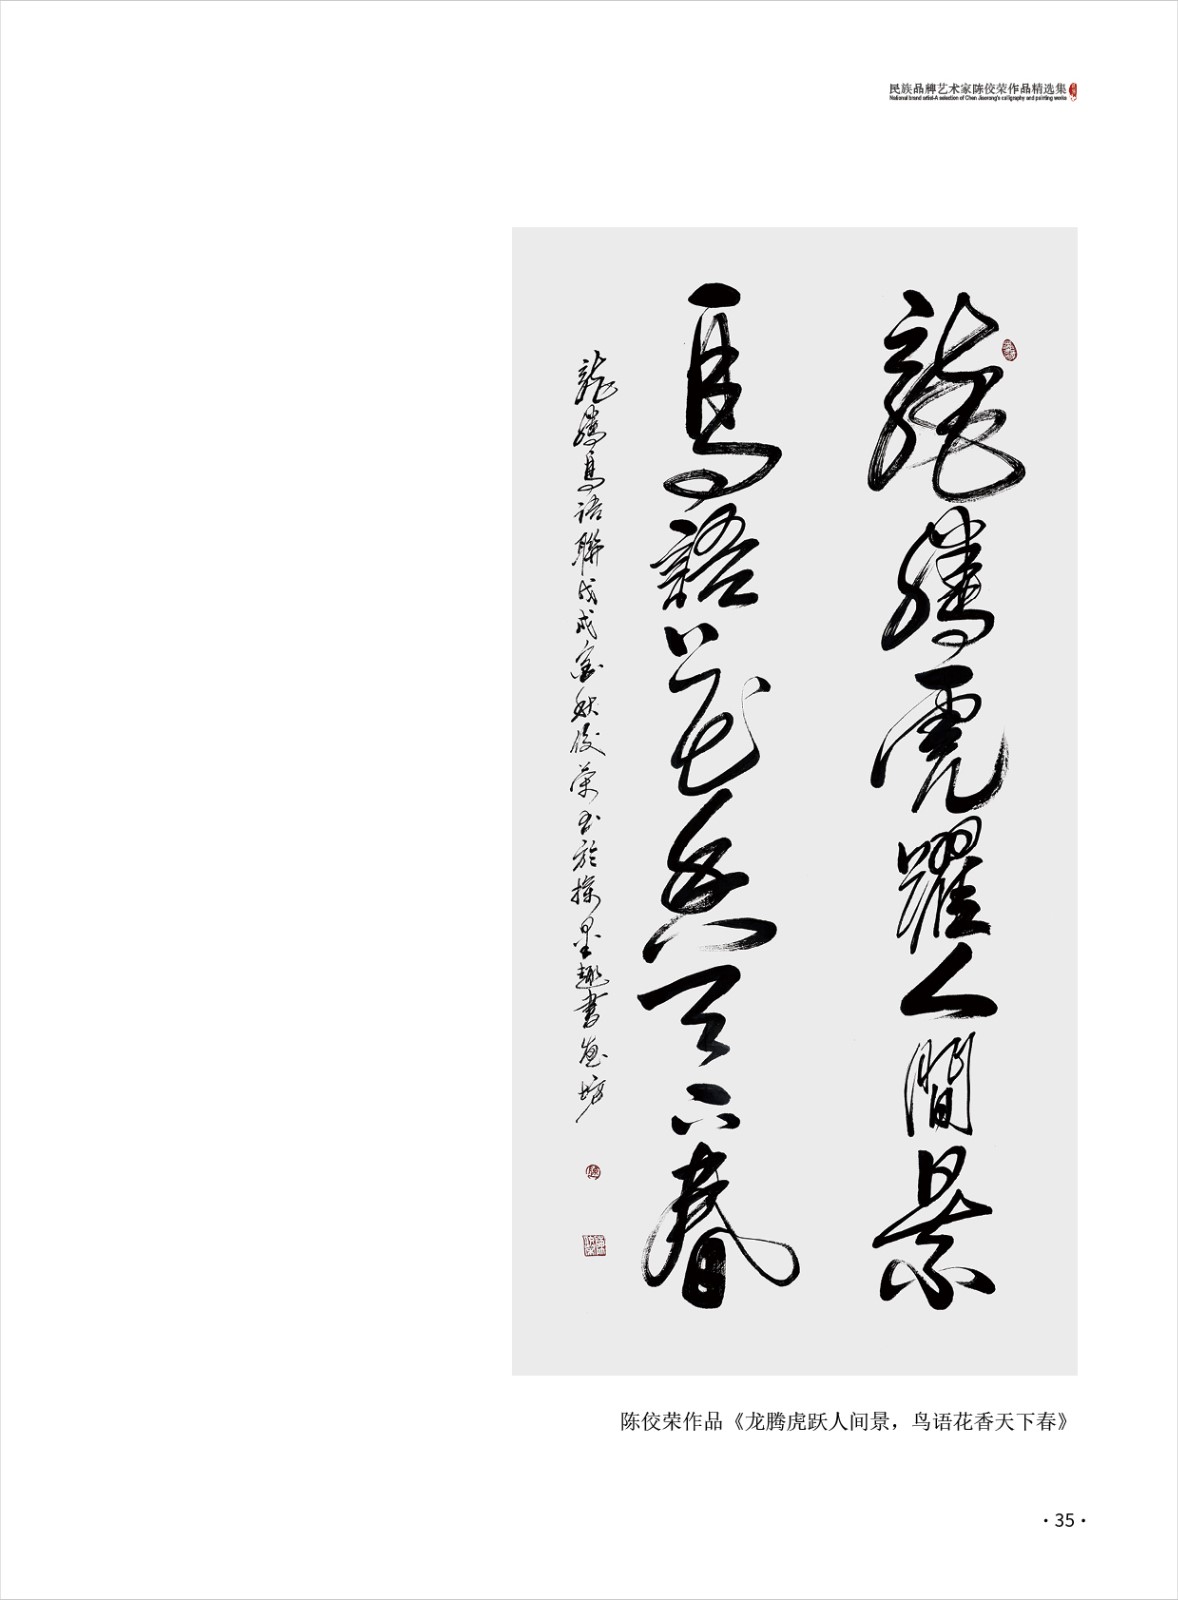 民族品牌艺术家陈佼荣作品精选集
National brand artist-A selection of Chen Jiaorong's calligraphy and painting works
龍騰虎躍人間景
鳥語花香天下春
龍騰鳥語聯戊戌金秋佼榮書於操墨趣書畫坊
陈佼荣作品《龙腾虎跃人间景，鸟语花香天下春》
·35·